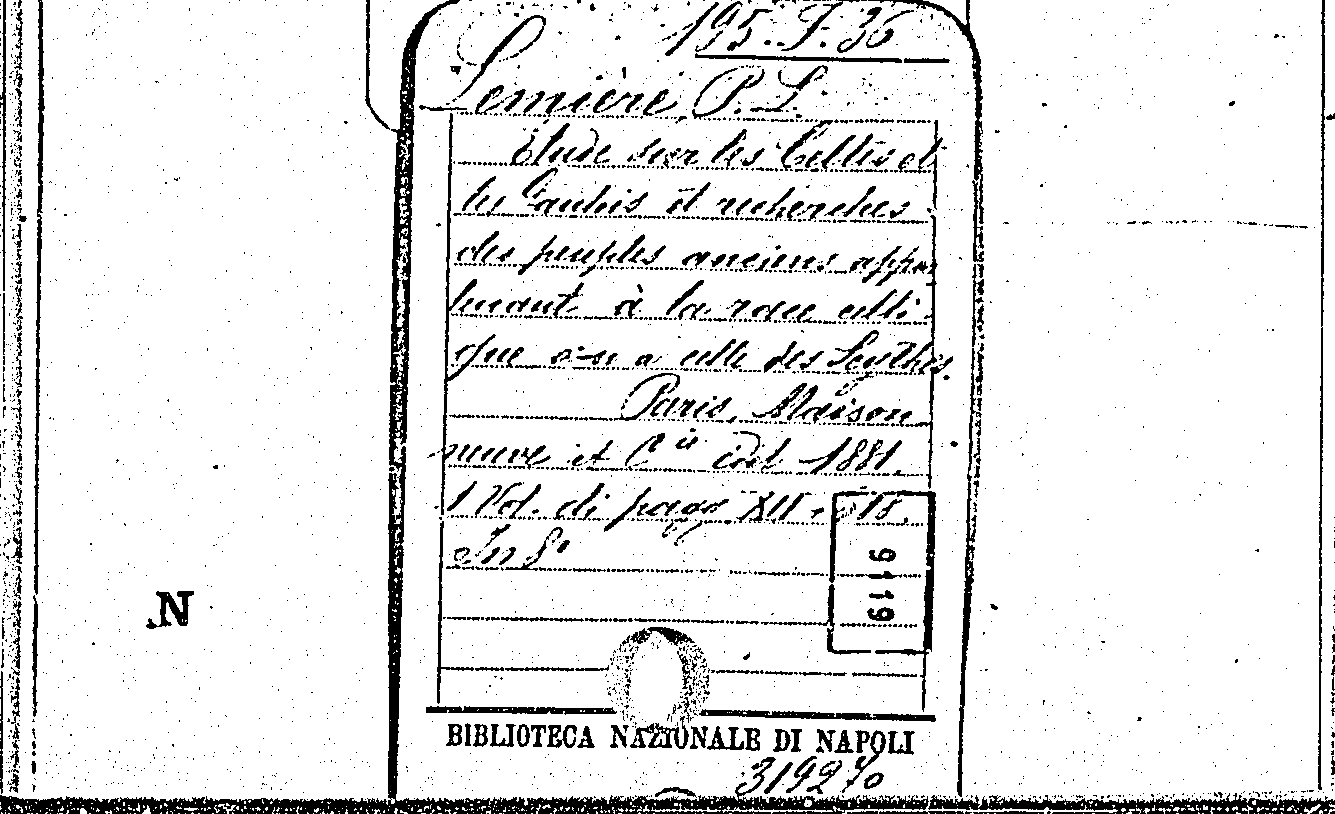 195. J. 36
Lemière, P. L.
Etude sur les Celtes et
les Gaulois et recherches
des peuples anciens appar
tenant à la race celti-
que ou a celle des Scythes.
Paris, Maison
neuve et Cie édit. 1881.
1 Vol. di pagg. XII +
In 8°
9119
N
BIBLIOTECA NAZIONALE DI NAPOLI
319270